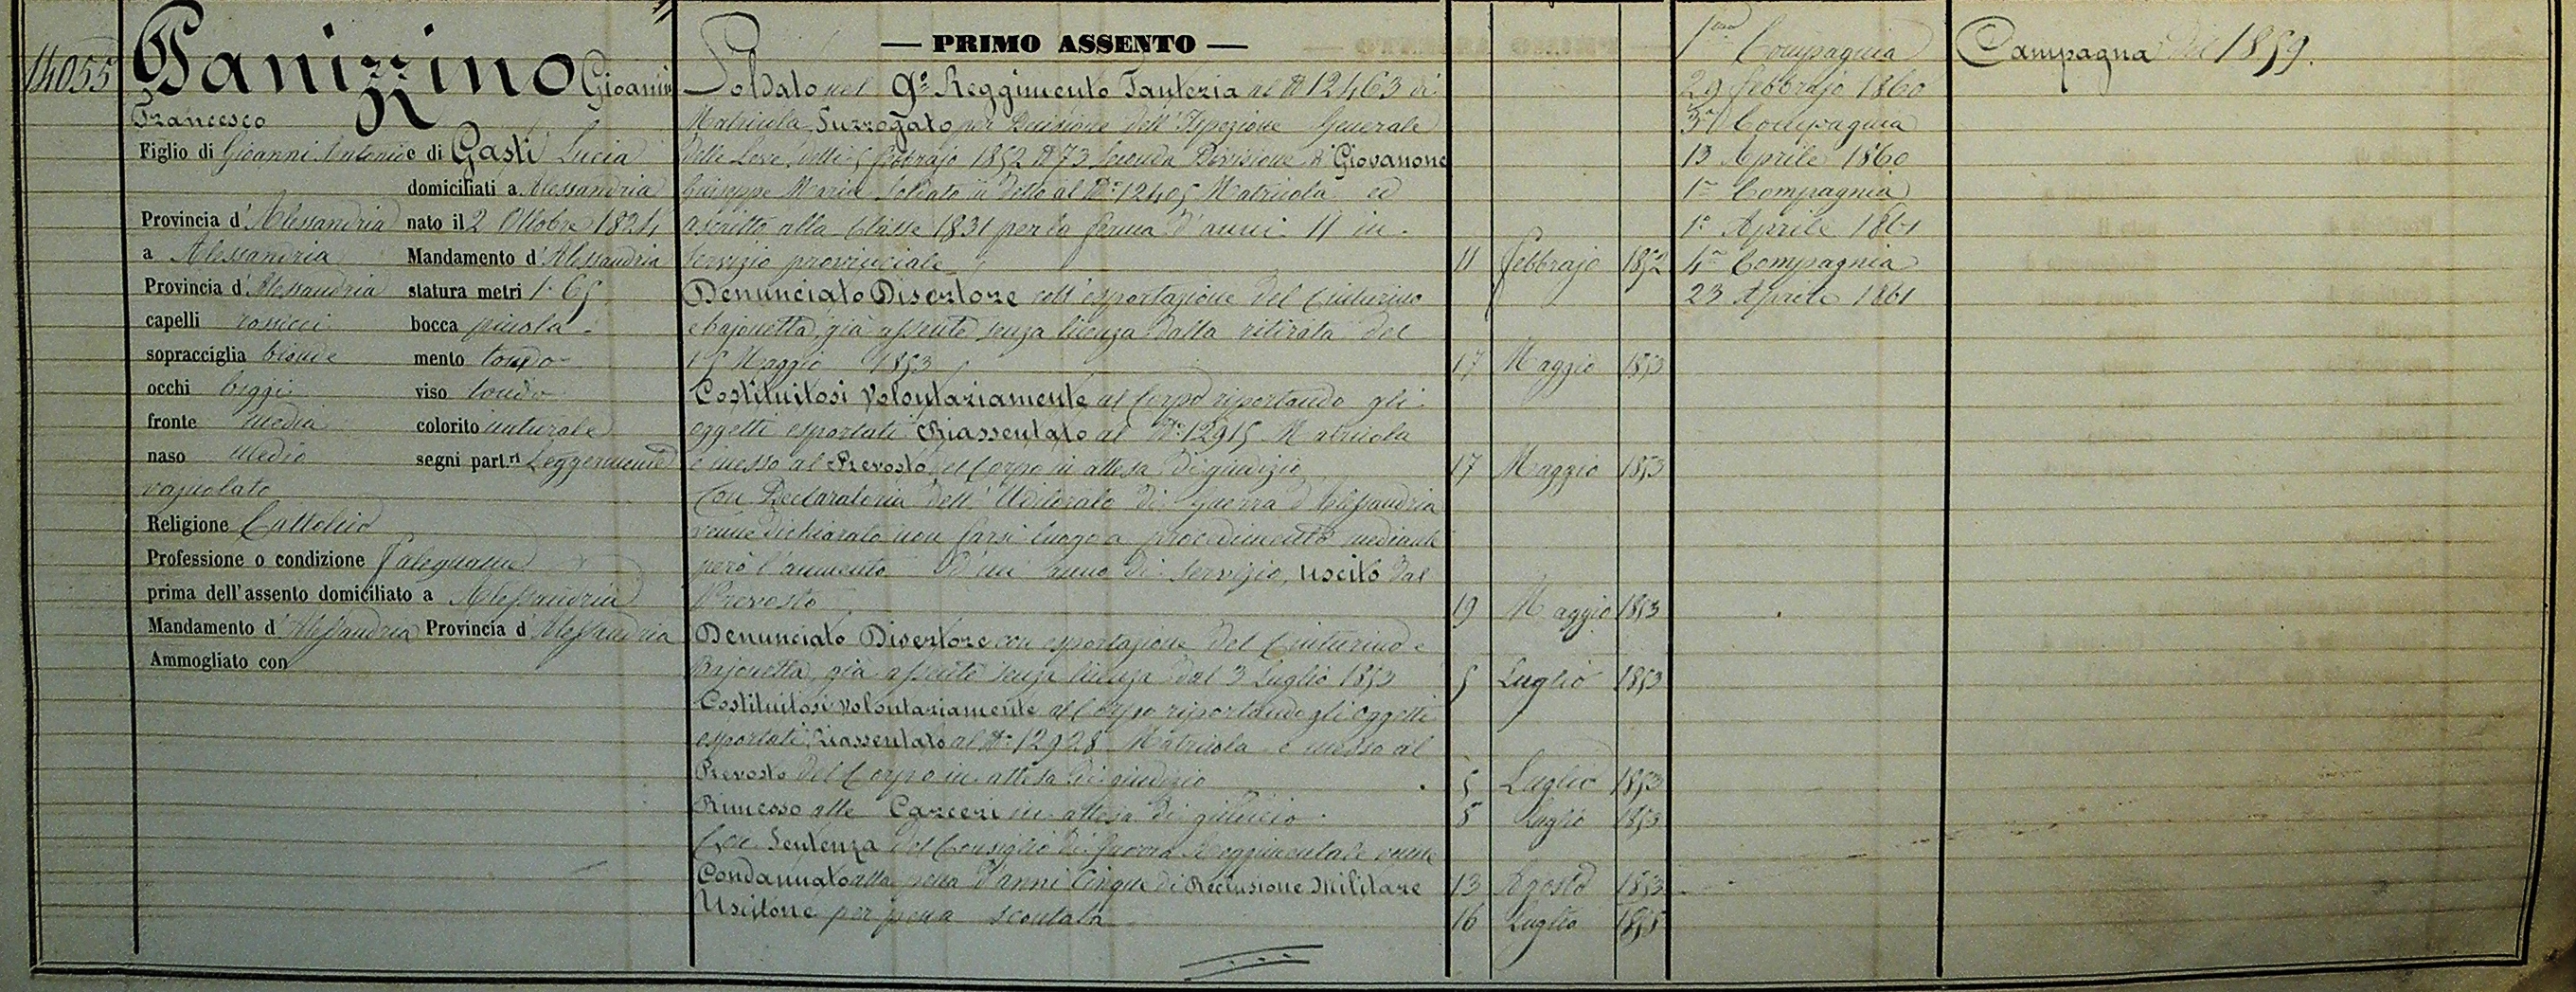 14055
Panizzino Gioanni
Francesco
Figlio di Gioanni Antonio e di Gasti Lucia
domiciliati a Alessandria
Provincia d'Alessandria nato il 2 Ottobre 1824
a Alessandria Mandamento d'Alessandria
Provincia d'Alessandria statura metri 1. 65
capelli rossicci bocca piccola
sopracciglia bionde mento tondo
occhi biggi viso tondo
fronte media colorito naturale
naso medio segni part.ri Leggermente
vajuolato
Religione Cattolico
Professione o condizione Falegname
prima dell'assento domiciliato a Alessandria
Mandamento d'Alessandria Provincia d'Alessandria
Ammogliato con
— PRIMO ASSENTO —
Soldato nel 9º Reggimento Fanteria al Nº 12463 di
Matricola Surrogato per Decisione dell'Ispezione Generale
delle Leve delli 5 Febbrajo 1852 Nº 73 Seconda Divisione a Giovanone
Giuseppe Maria Soldato in detto al Nº 12405 Matricola ed
ascritto alla Classe 1831 per la ferma d'anni 11 in
servizio provinciale 11 Febbrajo 1852
Denunciato Disertore coll'esportazione del Cinturino
e bajonetta, già assente senza licenza dalla ritirata del
15 Maggio 1853 17 Maggio 1853
Costituitosi Volontariamente al Corpo riportando gli
oggetti esportati Riassentato al Nº 12915 Matricola
e messo al Prevosto del Corpo in attesa di giudizio 17 Maggio 1853
Con Declaratoria dell'Uditorato di Guerra d'Alessandria
venne dichiarato non farsi luogo a procedimento mediante
però l'aumento d'un anno di servizio, uscito dal
Prevosto 19 Maggio 1853
Denunciato Disertore con esportazione del Cinturino e
Bajonetta, già assente senza licenza dal 3 Luglio 1853 5 Luglio 1853
Costituitosi volontariamente al Corpo riportando gli oggetti
esportati, Riassentato al Nº 12928 Matricola e messo al
Prevosto del Corpo in attesa di giudizio 5 Luglio 1853
Rimesso alle Carceri in attesa di giudicio 8 Luglio 1853
Con Sentenza del Consiglio di Guerra Reggimentale venne
Condannato alla pena d'anni Cinque di Reclusione Militare 13 Agosto 1853
Uscitone per pena scontata 16 Luglio 1858
1ma Compagnia
29 Febbrajo 1860
3a Compagnia
13 Aprile 1860
1a Compagnia
1º Aprile 1861
4a Compagnia
23 Aprile 1861
Campagna del 1859.